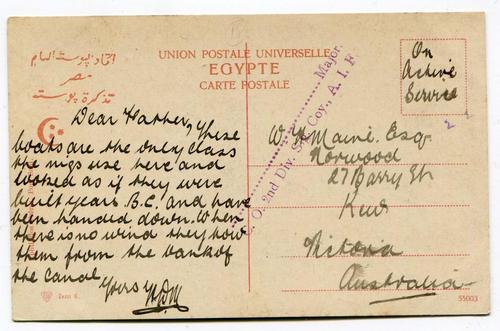 UNION POSTALE UNIVERSELLE
EGYPTE
CARTE POSTALE
اتحاد پوستة العام
مصر
تذكرة پوسته
Dear Father, These
boats are the only class
the nigs use here and
looked as if they were
built years B.C. and have
been handed down. When
there is no wind they tow
them from the bank of
the canal.
Yours
Major.
O. 2nd Div. Sig. Coy., A. I. F.
On
Active
Service
W. Maine. Esq
Norwood
27 Barry St
Kew
Victoria
Australia
55003